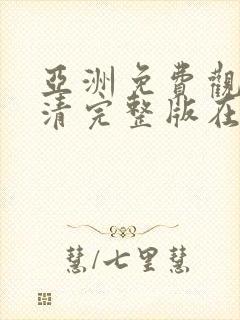 亞洲免費觀
清完整版在
慧/七里慧